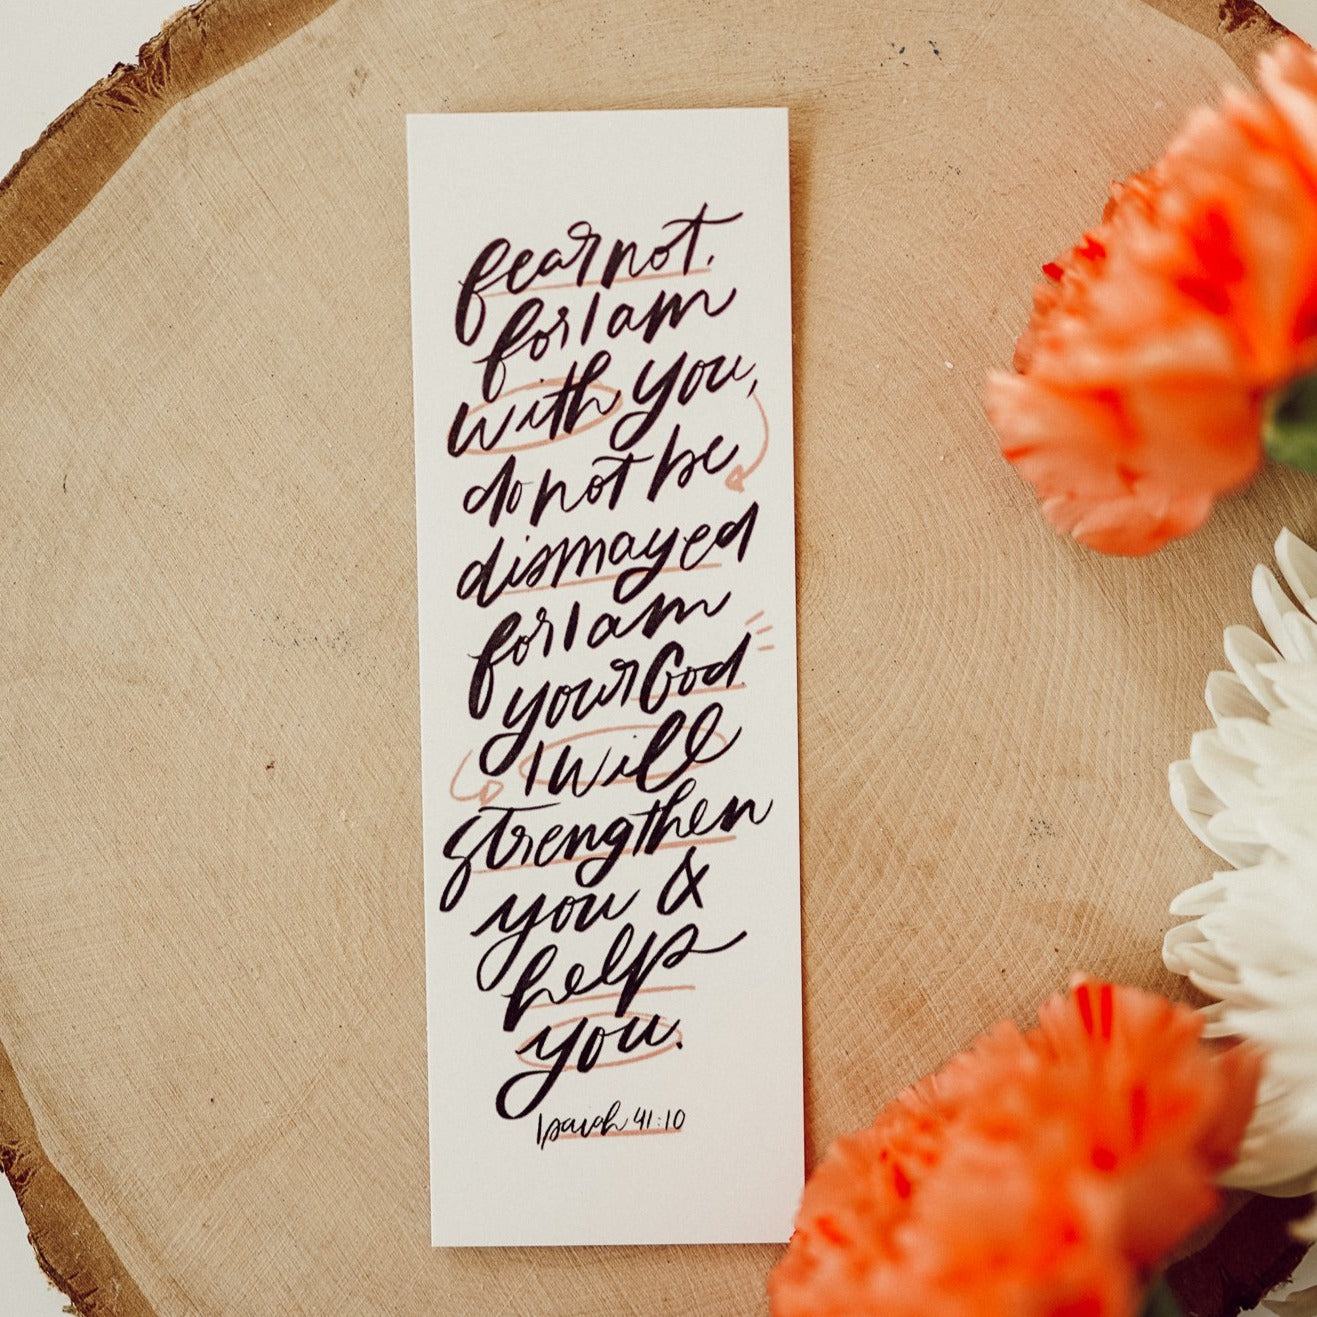 fear not.
for I am
with you,
do not be
dismayed
for I am
your God.
I will
strengthen
you &
help
you.
Isaiah 41:10